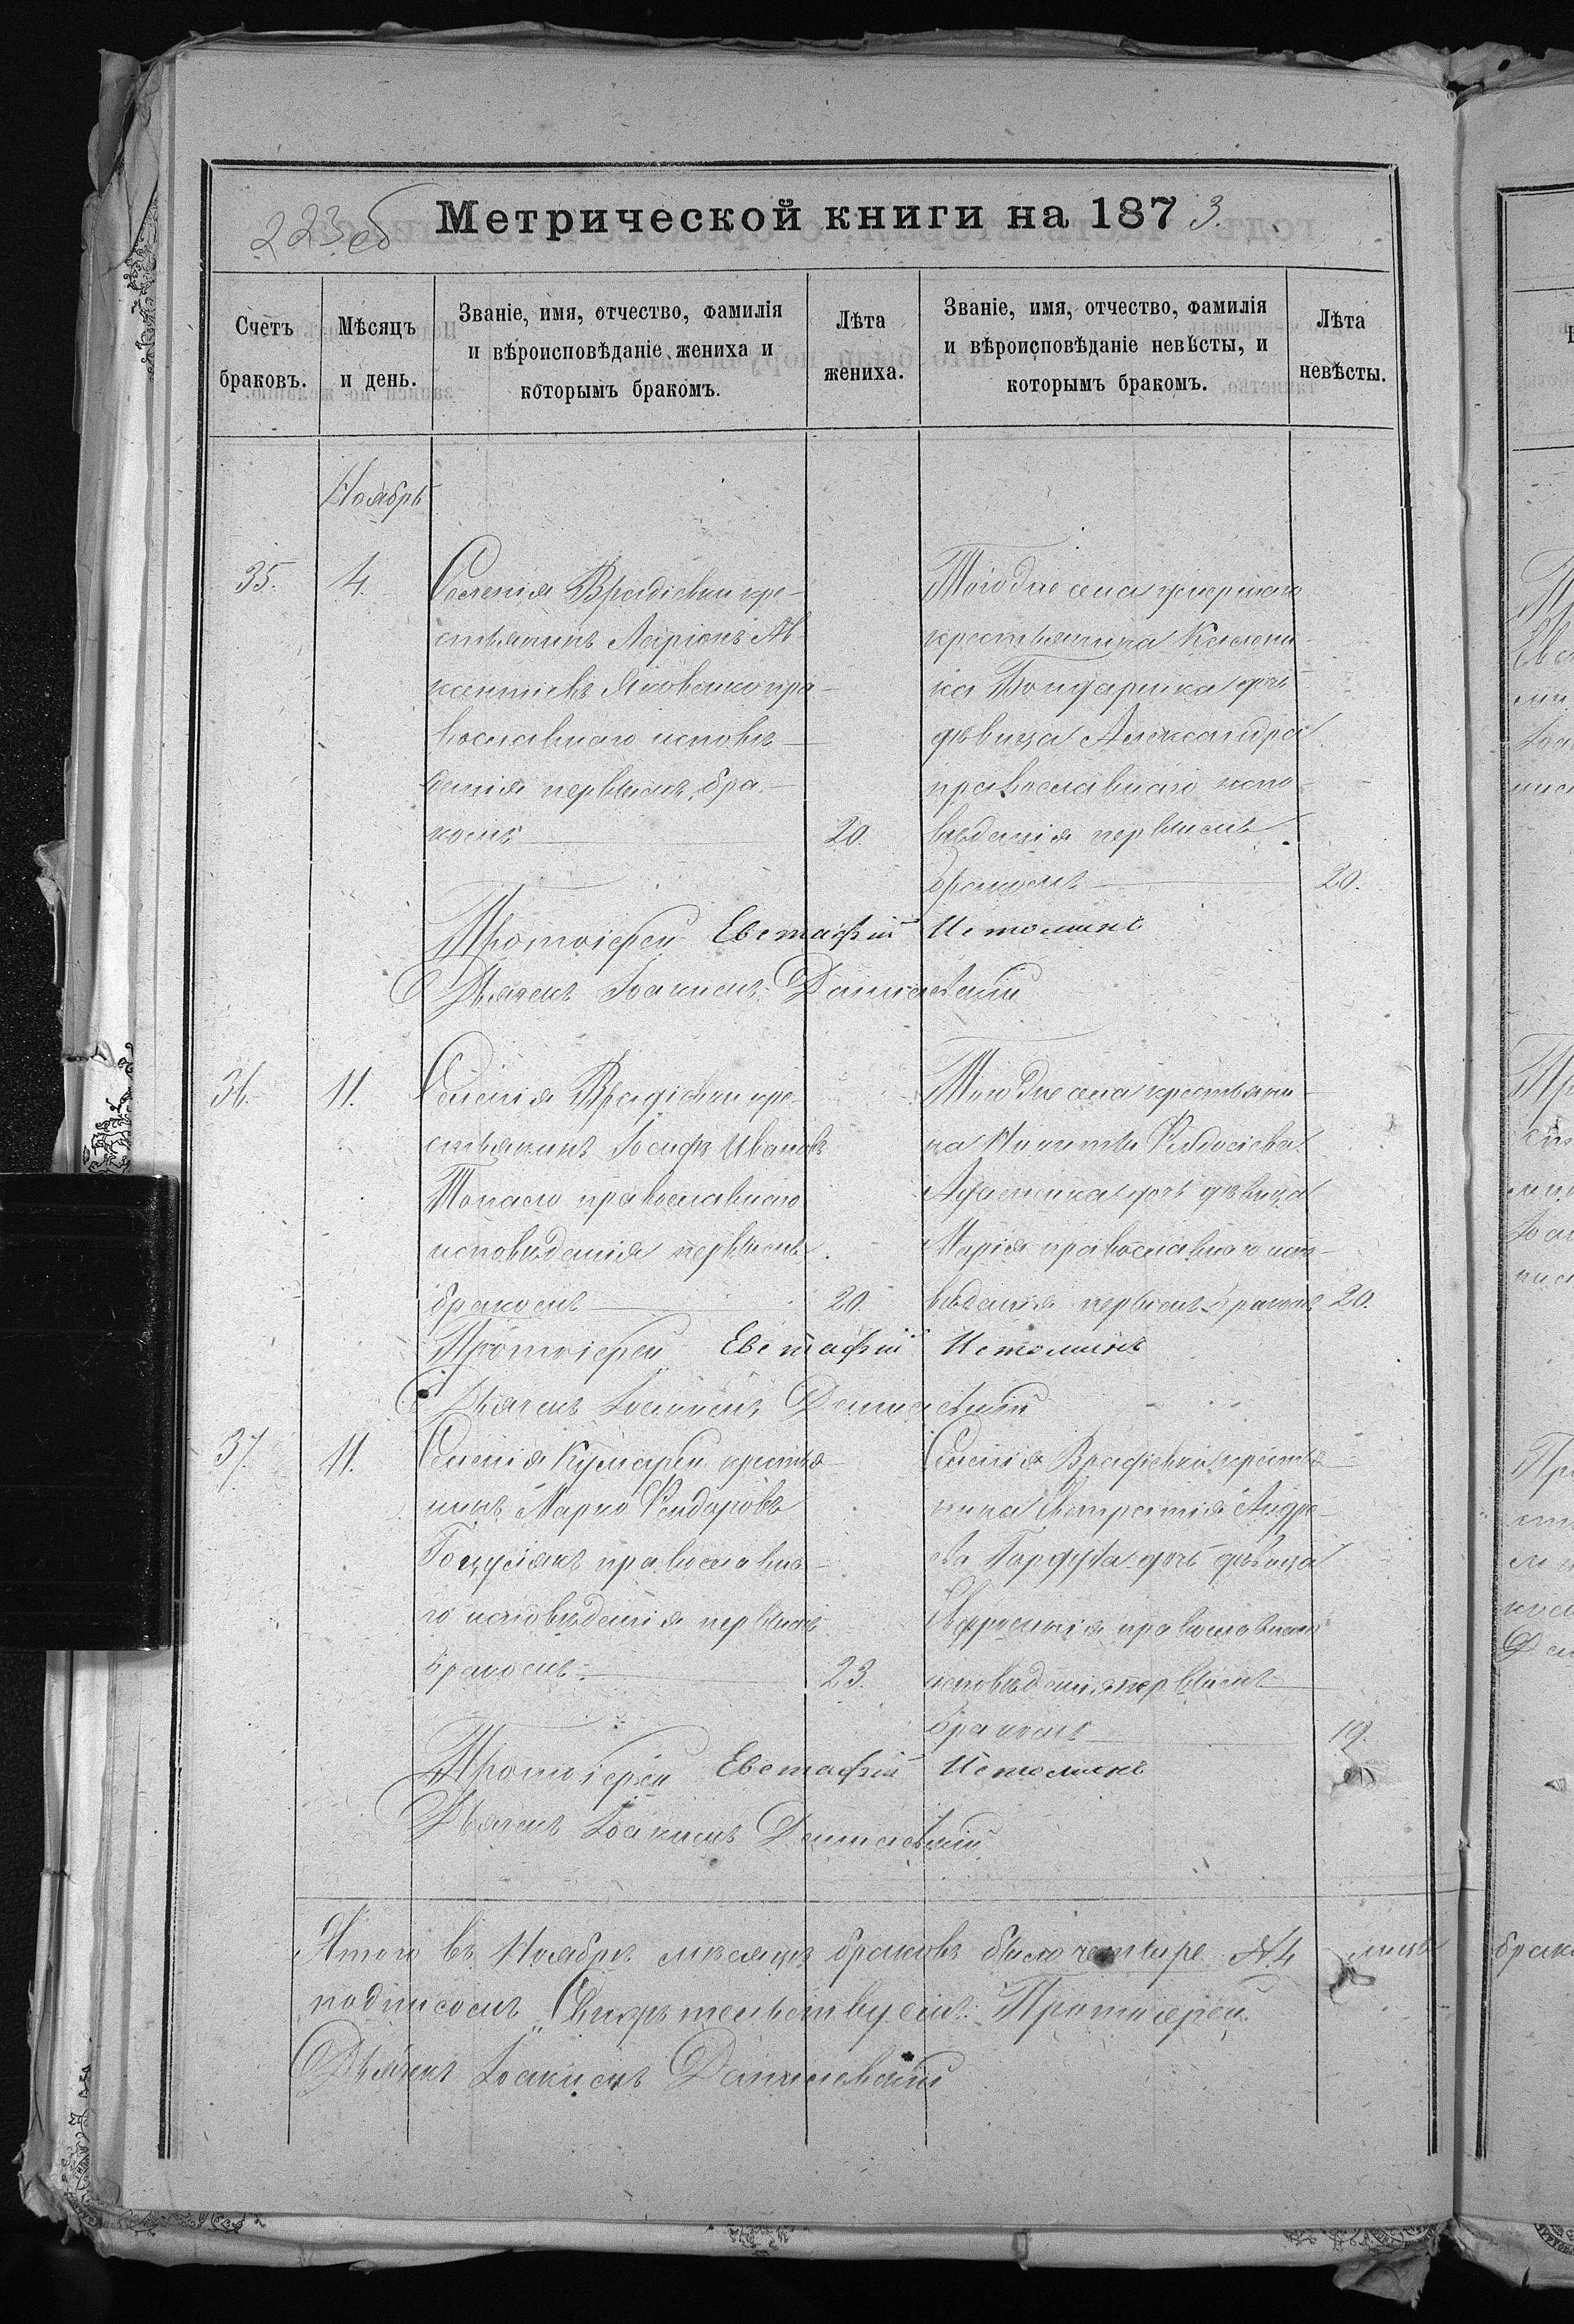 223 об
Метрической книги на 1873.
Счетъ браковъ.
Мѣсяцъ и день.
Званіе, имя, отчество, фамилія
и вѣроисповѣданіе жениха и
которымъ бракомъ.
Лѣта жениха.
Званіе, имя, отчество, фамилія
и вѣроисповѣданіе невѣсты, и
которымъ бракомъ.
Лѣта невѣсты.
Ноябрь
35.
4.
Селенія Врадіевки кре-
стьянинъ Ларіонъ Ав-
ксентіевъ Яковенко пра-
вославнаго исповѣ-
данія первымъ бра-
комъ
20.
Тогоже села умершаго
крестьянина
ка Бондаренка дочь
дѣвица Александра
православнаго испо-
вѣданія первымъ
бракомъ
20.
Протоіерей Евстафій Истоминъ
Дьячекъ Іоакимъ
36.
11.
Селенія Врадіевки кре-
стьянинъ Іосифъ Ивановъ
православнаго
исповѣданія первымъ
бракомъ
20.
Тогоже села крестьяни-
на Никиты Ѳеодосіева
дочь дѣвица
Марія православнаго испо-
вѣданія первымъ бракомъ
20.
Протоіерей Евстафій Истоминъ
Дьячекъ Іоакимъ
37.
11.
Селенія Кумарей крестья-
нинъ Марко Ѳеодоровъ
Гоцулякъ православна-
го исповѣданія первымъ
бракомъ
23.
Селенія Врадіевки крестья-
нина Андре-
ева дочь дѣвица
Евфросинія православнаго
исповѣданія первымъ
бракомъ
19.
Протоіерей Евстафій Истоминъ
Дьячекъ Іоакимъ
Итого въ Ноябрѣ мѣсяцѣ браковъ было четыре № 4
подписомъ Свидѣтельствуемъ: Протоіерей
Дьячекъ Іоакимъ